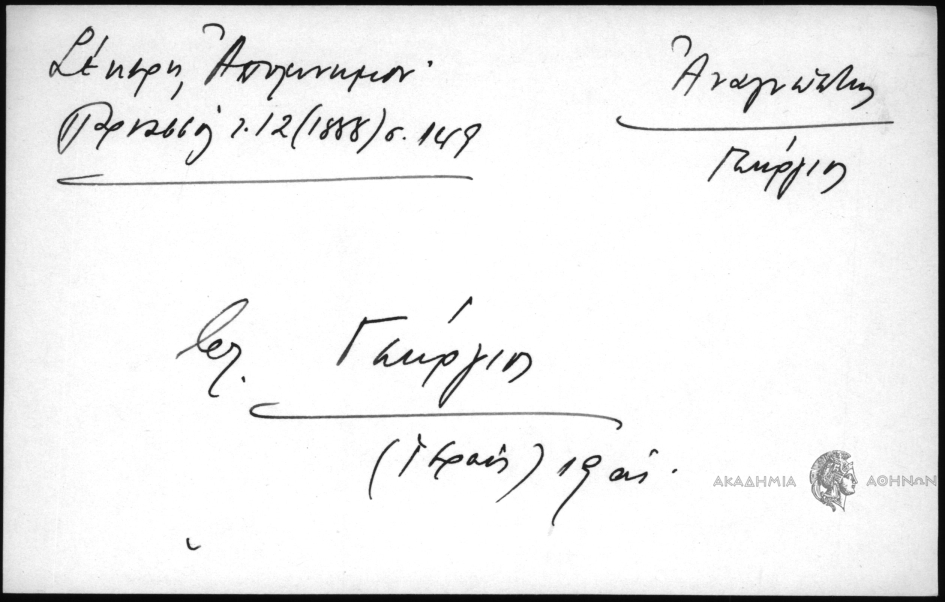 Σέκερη, Ἀπομνημον.
Παρνασσός τ. 12 (1888) σ. 149
Ἀναγνώστης
Γεώργιος
βλ. Γεώργιος
(ἱερεύς) 19 αἰ.
ΑΚΑΔΗΜΙΑ ΑΘΗΝΩΝ